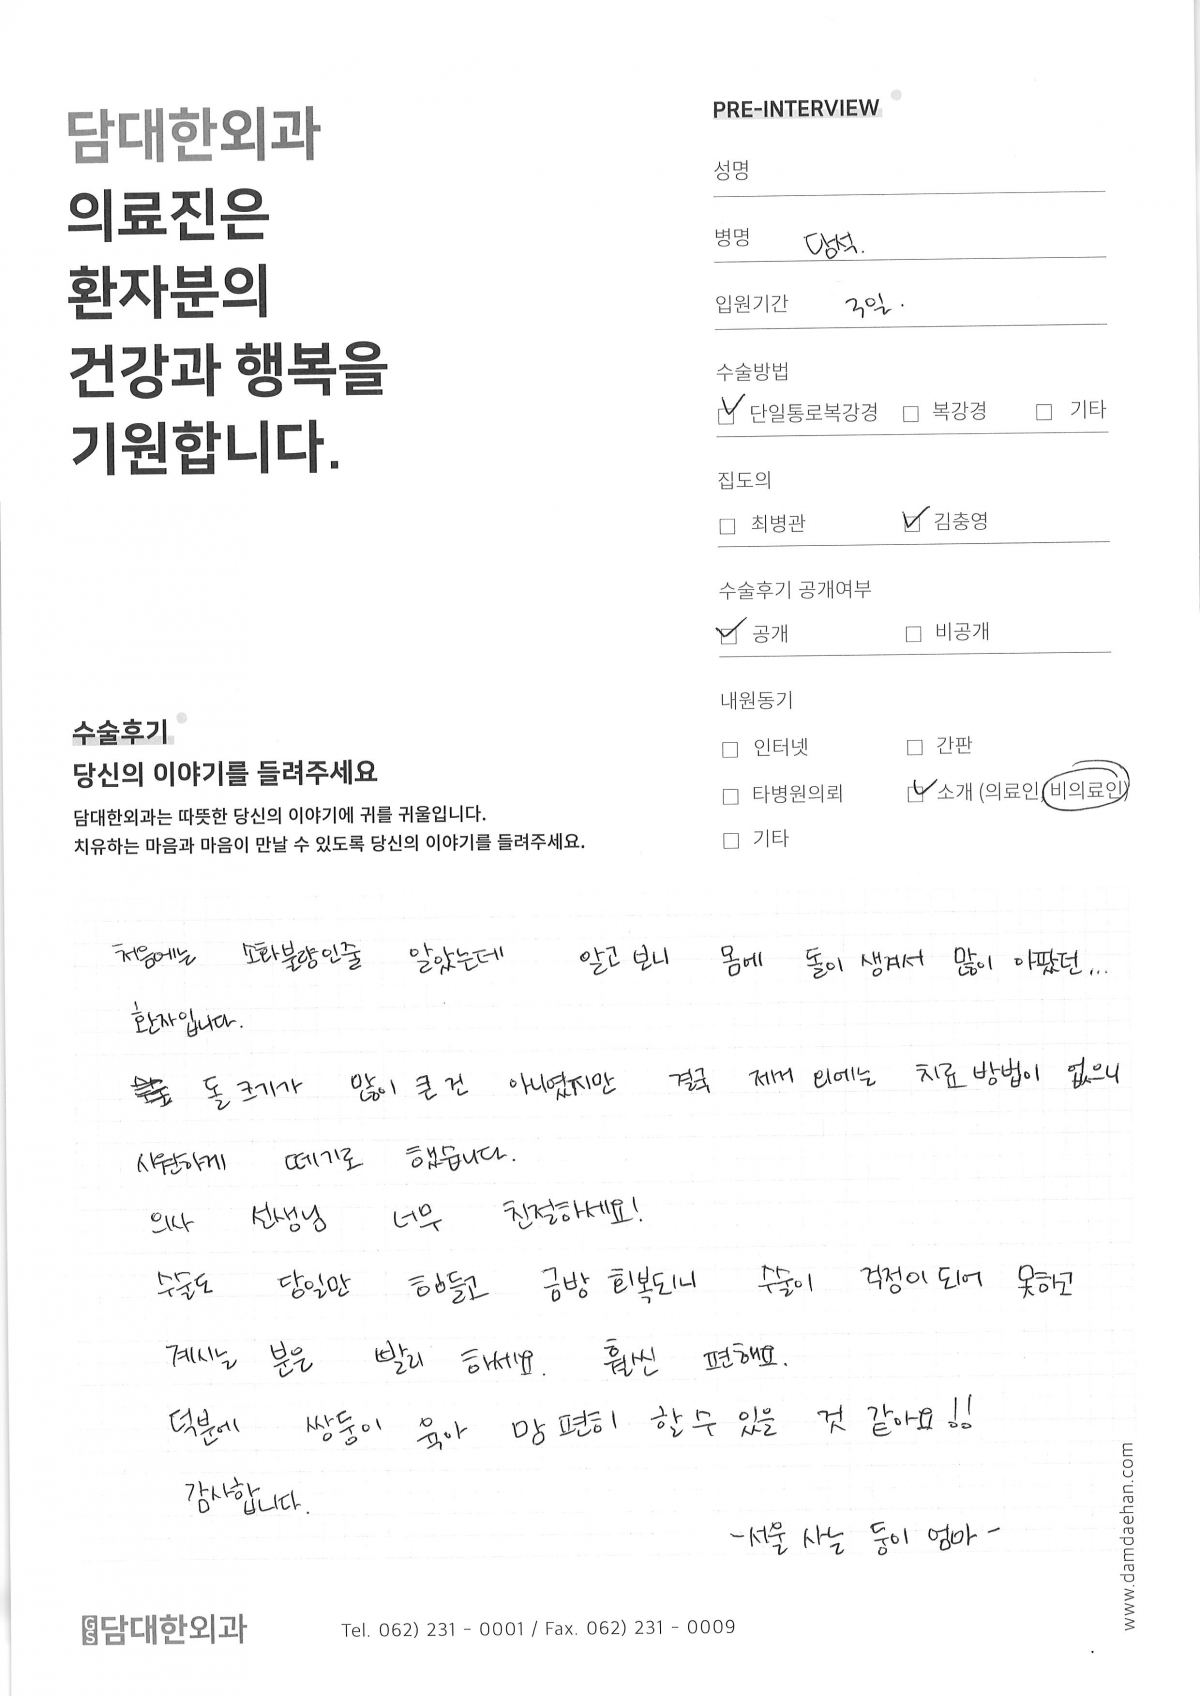 담대한외과
의료진은
환자분의
건강과 행복을
기원합니다.
PRE-INTERVIEW
성명
병명 담석.
입원기간 3일.
수술방법
단일통로복강경 복강경 기타
집도의
최병관 김충영
수술후기 공개여부
공개 비공개
내원동기
인터넷 간판
타병원의뢰 소개 (의료인, 비의료인)
기타
수술후기
당신의 이야기를 들려주세요
담대한외과는 따뜻한 당신의 이야기에 귀를 귀울입니다.
치유하는 마음과 마음이 만날 수 있도록 당신의 이야기를 들려주세요.
처음에는 소화불량인줄 알았는데 알고 보니 몸에 돌이 생겨서 많이 아팠던...
환자입니다.
돌 크기가 많이 큰 건 아니였지만 결국 제거 외에는 치료 방법이 없으니
시원하게 떼기로 했습니다.
의사 선생님 너무 친절하세요!
수술도 당일만 힘들고 금방 회복되니 수술이 걱정이 되어 못하고
계시는 분은 빨리 하세요. 훨씬 편해요.
덕분에 쌍둥이 육아 맘 편히 할 수 있을 것 같아요!!
감사합니다.
-서울 사는 둥이 엄마-
www.damdaehan.com
GS 담대한외과
Tel. 062) 231 - 0001 / Fax. 062) 231 - 0009